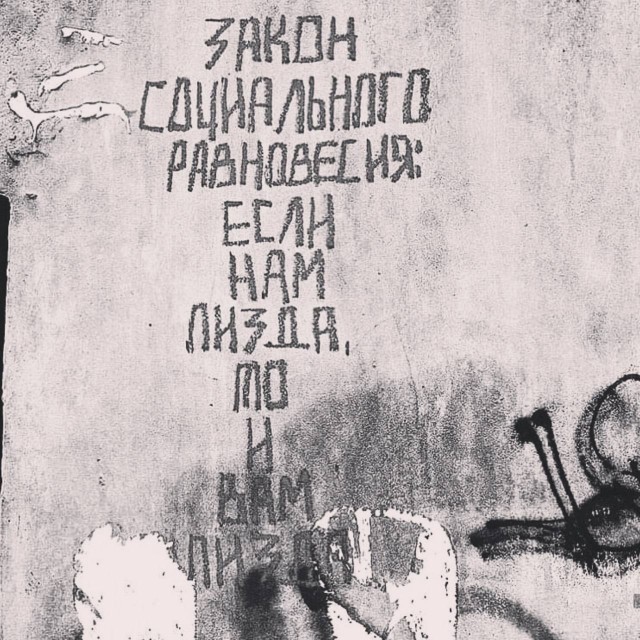 ЗАКОН
СОЦИАЛЬНОГО
РАВНОВЕСИЯ:
ЕСЛИ
НАМ
ПИЗДА,
ТО
И
ВАМ
ПИЗДА